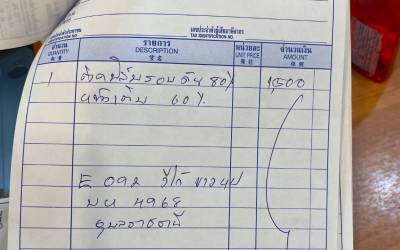 เลขประจำตัวผู้เสียภาษีอากร
TAX IDENTIFICATION NO.
จำนวน รายการ หน่วยละ จำนวนเงิน
QUANTITY DESCRIPTION UNIT PRICE AMOUNT
數量 貨名 單價 銀額
1 ติดฟิล์มรอบคัน 80% 1,500
หน้าเต็ม 60%
E 092 วีโก้ ขาว 4ป
บห 4968
อุบลราชธานี